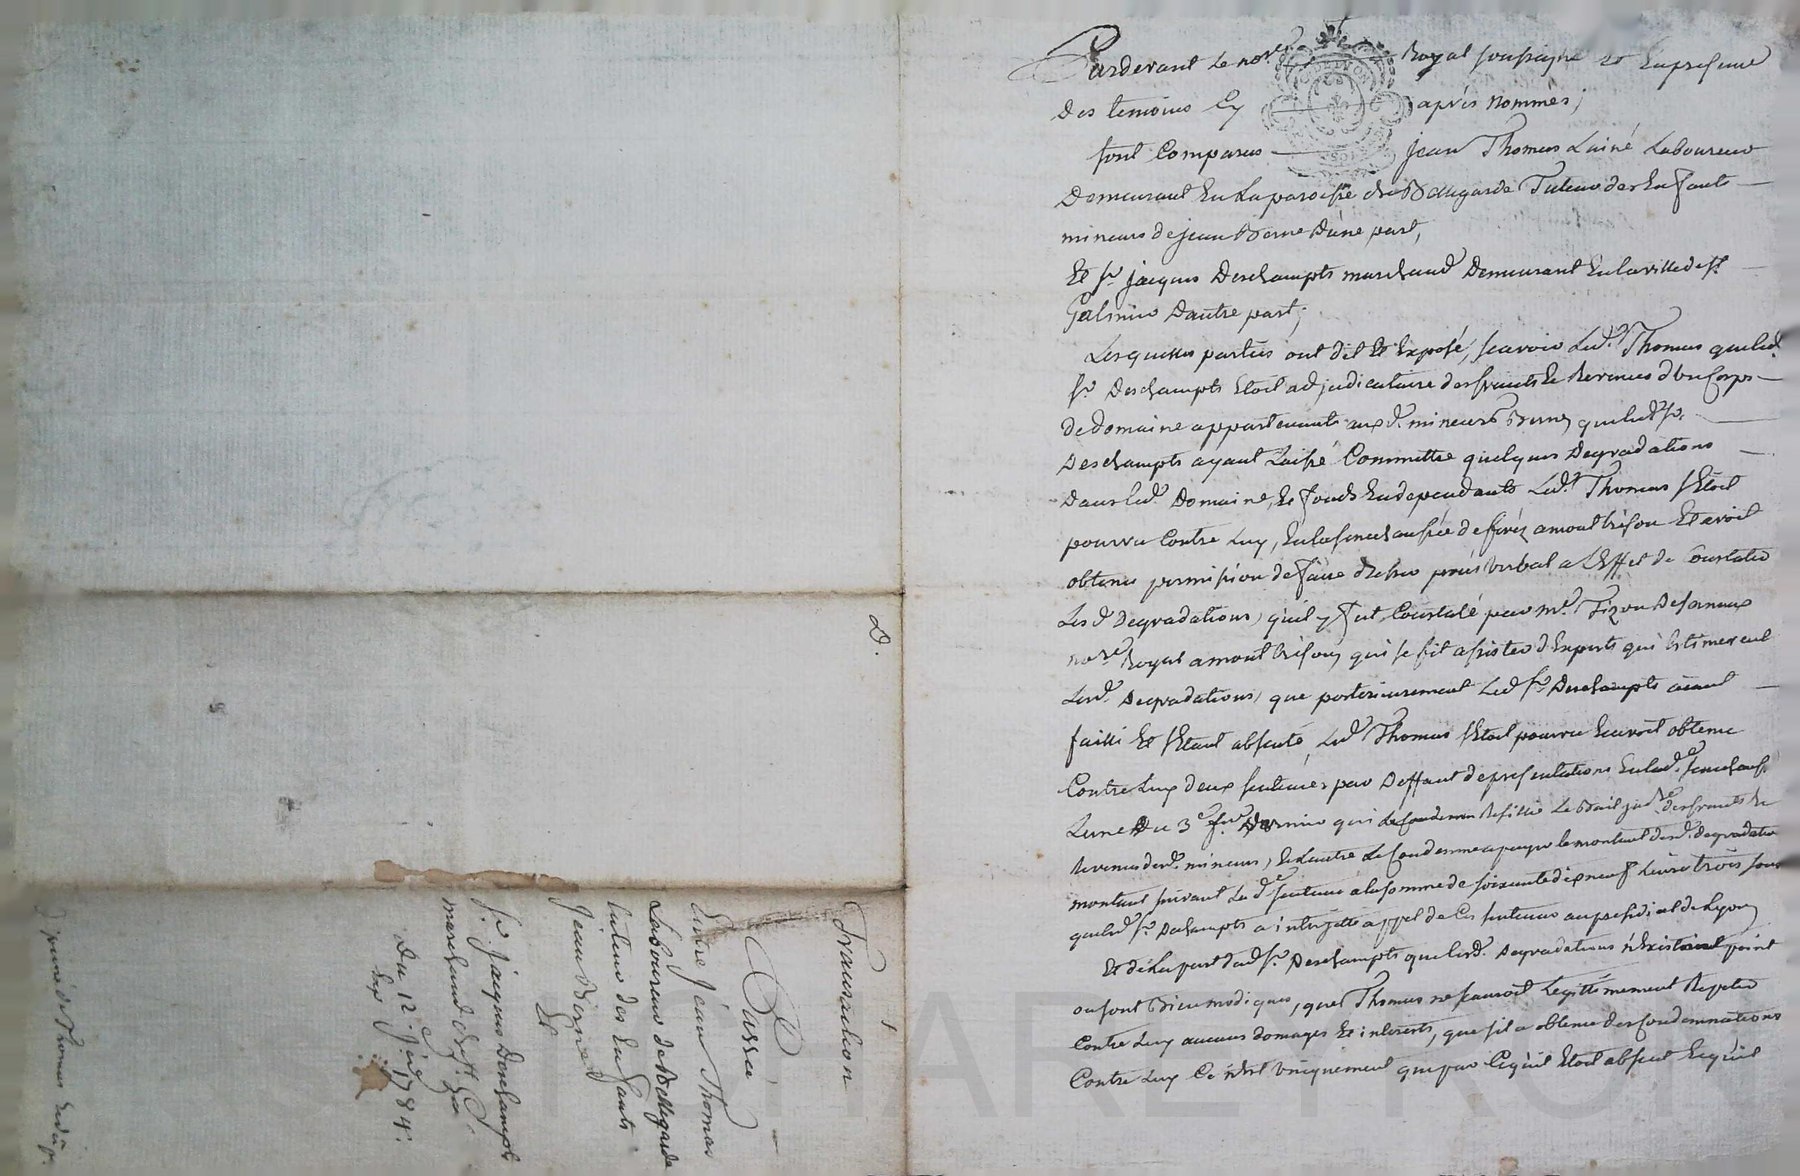 Pardevant Le no.re Royal soussigné et En presence
Des temoins Ey après nommés;
sont Comparus Jean Thomas Lainé Laboureur
Demeurant En La paroisse de Bellegarde Tuteur des Enfants
mineurs de jean Berne D'une part,
Et sr. jacques Deschampts marchand Demeurant En la ville de st.
Galmier Dautre part;
Lesquelles parties ont dit Et Exposé, scavoir Led. Thomas que led.
sr. Deschampts Etoit adjudicataire des fruits Et Revenus d'un Corps
de domaine appartenants auxd. mineurs Berne, que led. sr.
Deschampts ayant Laissé Committre quelques Degradations
Dans led. Domaine, Et fonds En dependants Led. Thomas sEtoit
pourvu Contre Luy, En la senechaussée de forez a montbrison Et avoit
obtenu permission de faire dresser procès verbal a L'Effet de Constater
Les d. Degradations, qu'il y fut Constaté par me. Tizon
no.re Royal a montbrison, qui se fit assister d'Experts qui Estimerent
Lesd. Degradations, que posterieurement Led. sr. Deschampts aiant
failli Et sEtant absenté, Led. Thomas sEtoit pourvu Et avoit obtenu
Contre Luy deux sentences par Deffaut de presentations En lad. senechaussée
Lune Du 3e. Dernier qui Resillie Le Bail jud.re des fruits Et
Revenus desd. mineurs, Et Lautre Le Condamne a payer le montant desd. degradations
montant suivant Lad. sentence a la somme de soixante dix neuf Livres trois sous
que led. sr. Deschampts a interjetté appel de Ces sentences au presidial de Lyon,
Et de La part dud. sr. Deschampts que lesd. Degradations n'Existoient point
ou sont Bien modiques, que Thomas ne scauroit Legittimement Repeter
Contre Luy aucuns domages Et interests, que sil a obtenu des Condamnations
Contre Luy Ce n'Est uniquement que par Ce qu'il Etoit absent Et qu'il
D.
1
Transaction
Passée
Entre Jean Thomas
Laboureur de Bellegarde
tuteur des Enfants
Jean Berne
Et
sr. jacques Deschampts
marchand de st. Gal
Du 12e. 1784.
Exp